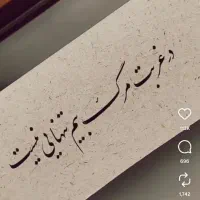 در غربت مرگ بیم تنهایی نیست
696
1,142